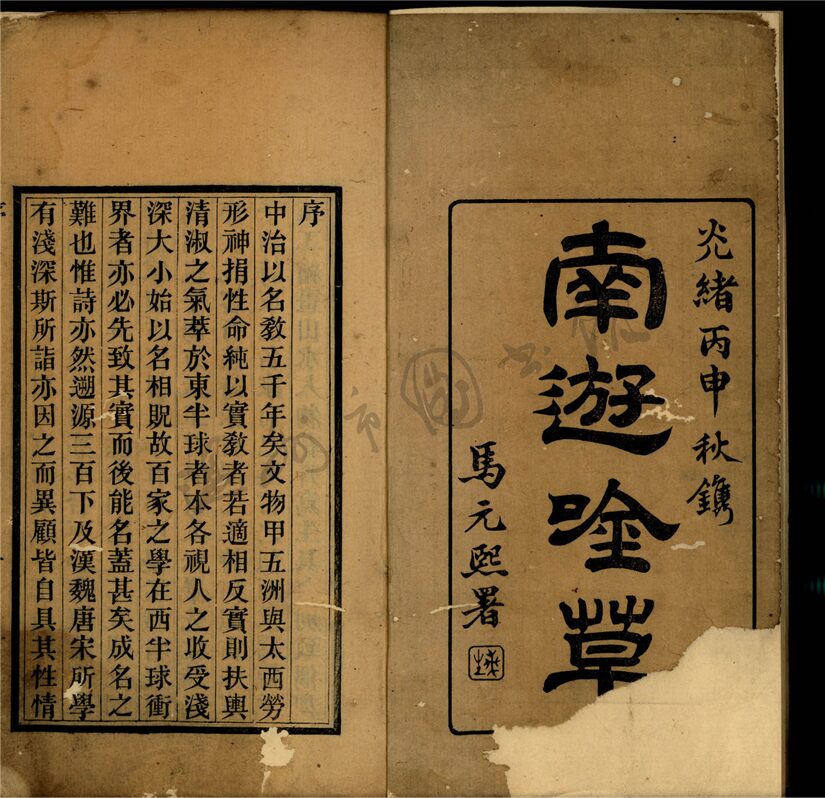 光緒丙申秋鐫
南遊唫草
馬元熙署
序
中治以名敎五千年矣文物甲五洲與太西勞
形神捐性命純以實敎者若適相反實則扶輿
清淑之氣萃於東半球者本各視人之收受淺
深大小始以名相貺故百家之學在西半球衝
界者亦必先致其實而後能名蓋甚矣成名之
難也惟詩亦然遡源三百下及漢魏唐宋所學
有淺深斯所詣亦因之而異顧皆自具其性情